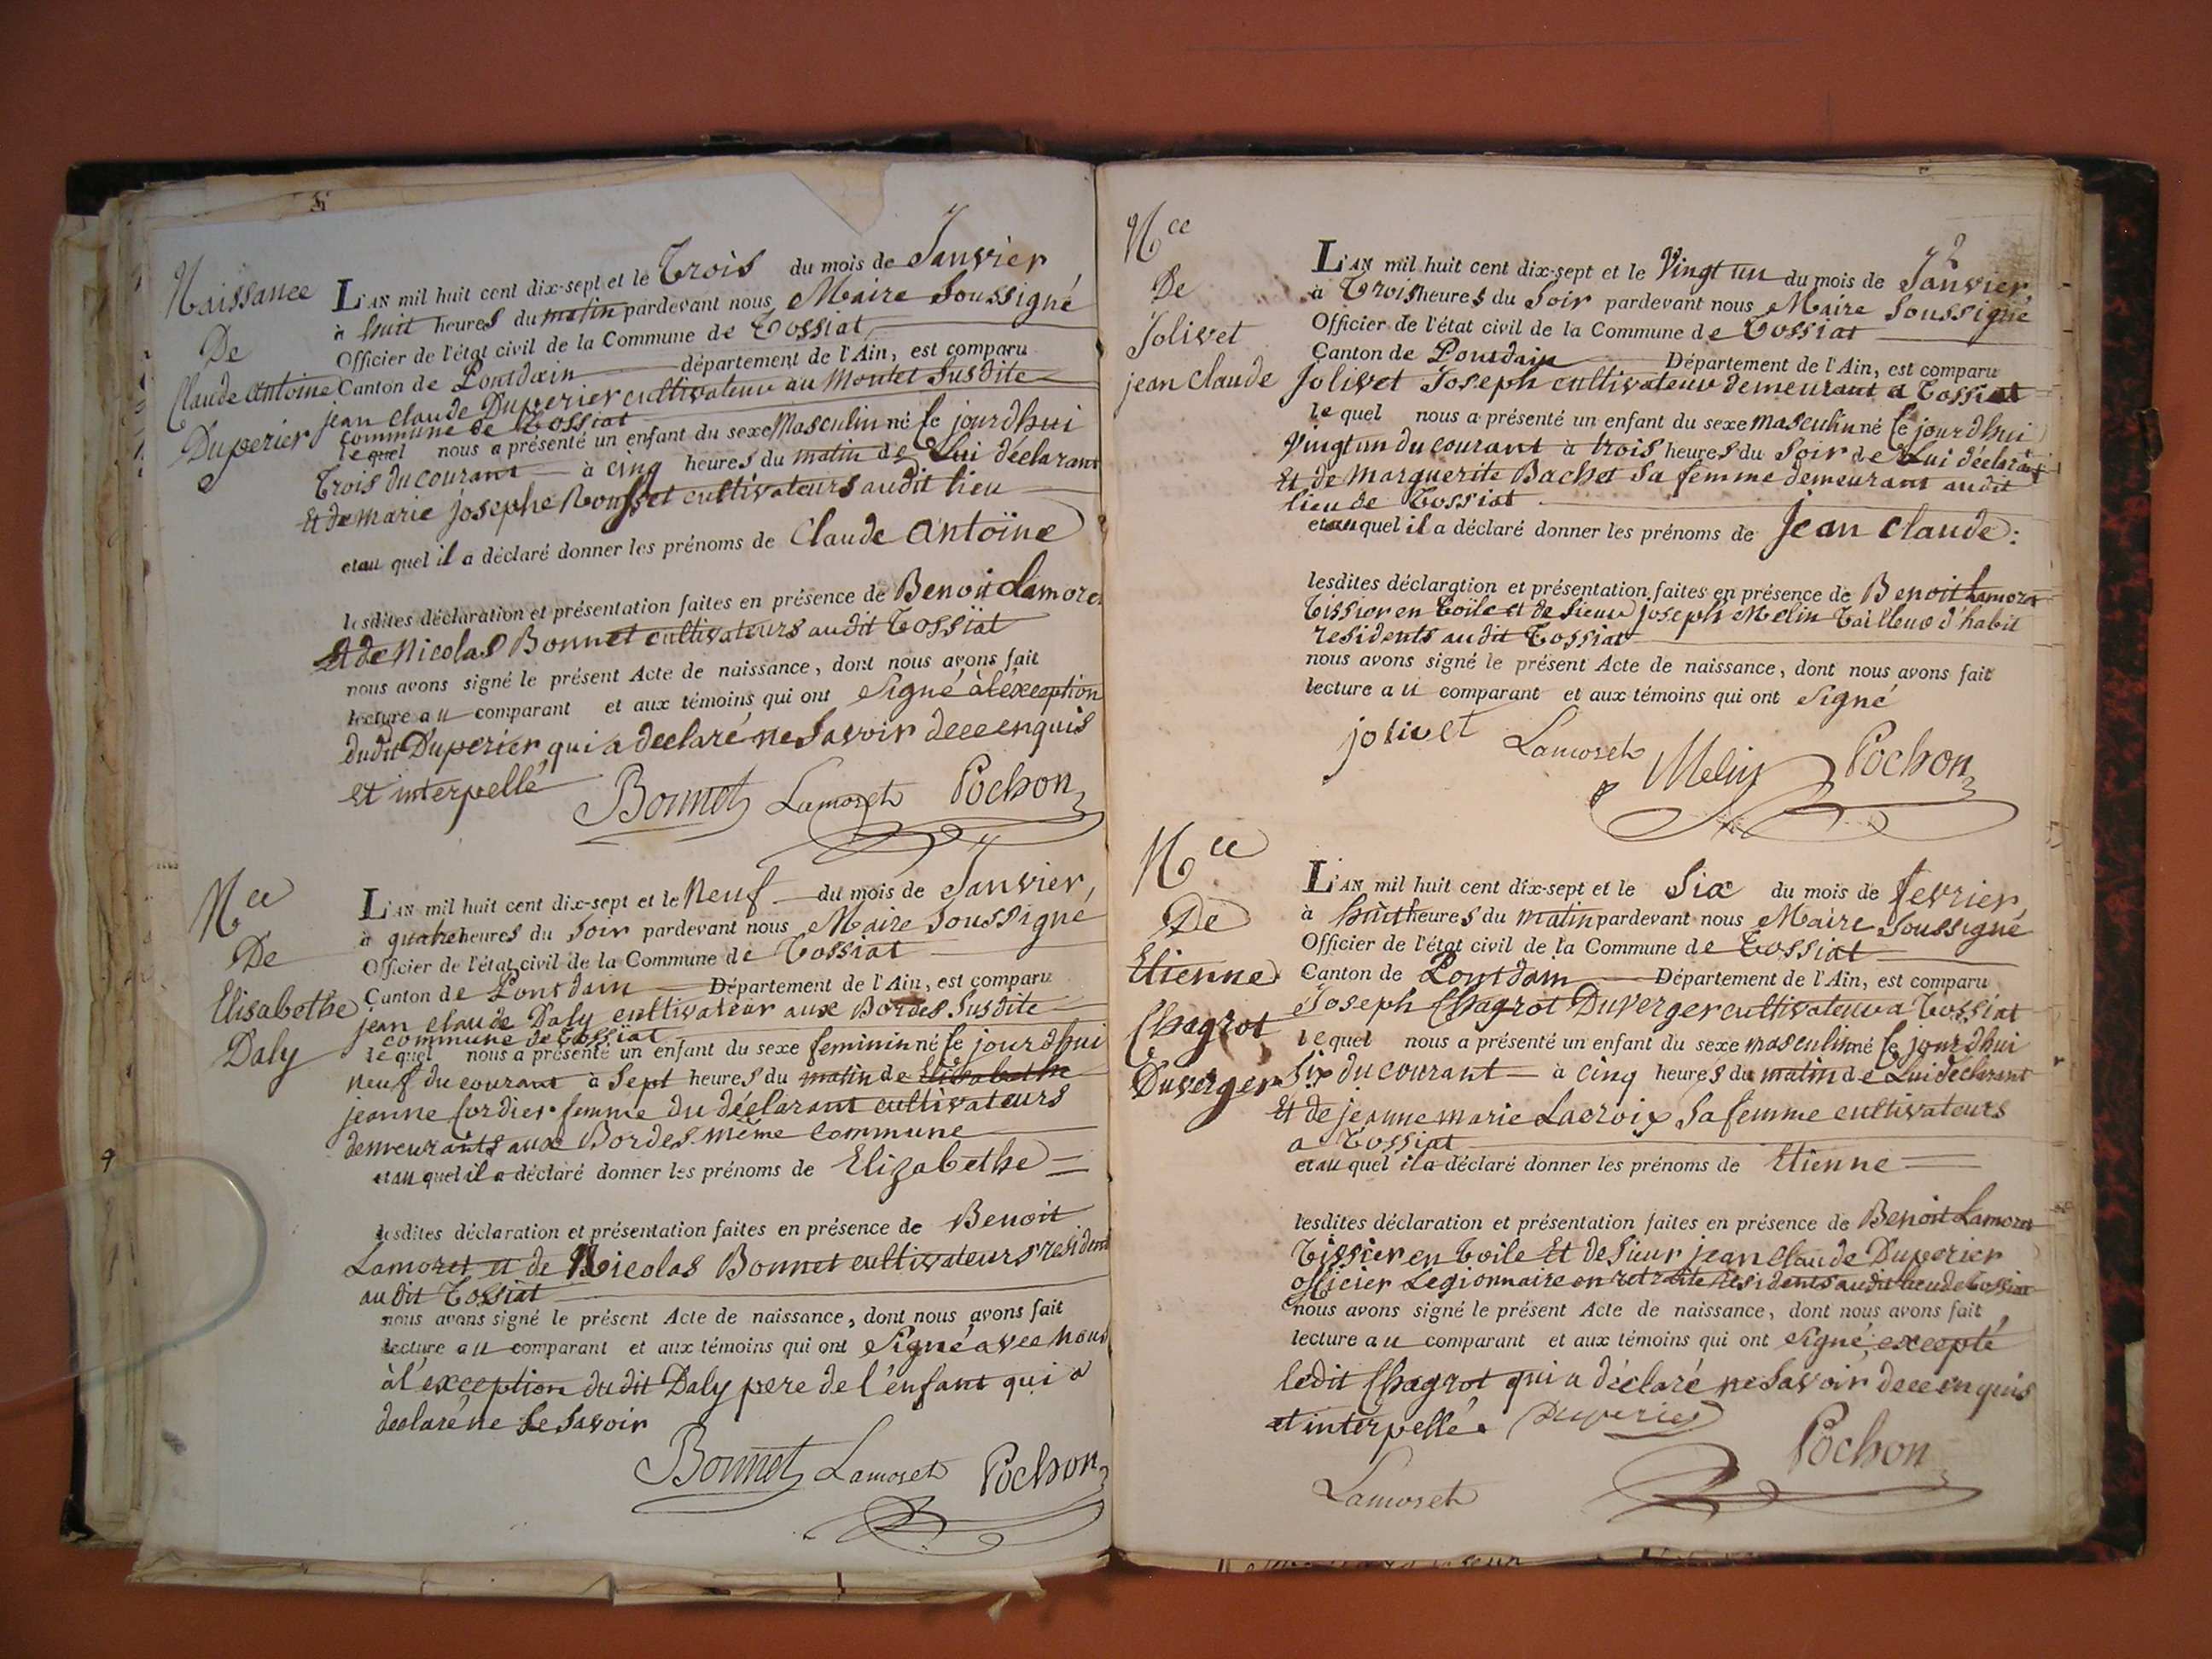 Naissance
De
Claude Antoine
Duperier
L'AN mil huit cent dix-sept et le Trois du mois de Janvier
à huit heures du matin pardevant nous Maire Soussigné
Officier de l'état civil de la Commune de Tossiat
Canton de Pontdain département de l'Ain, est comparu
jean claude Duperier cultivateur au Montet Susdite
commune de Tossiat
lequel nous a présenté un enfant du sexe Masculin né le jourdhui
Trois du courant à cinq heures du matin de Lui déclarant
Et de marie josephe Rousset cultivateurs audit lieu
et au quel il a déclaré donner les prénoms de Claude Antoine
lesdites déclaration et présentation faites en présence de Benoit Lamoret
Et de Nicolas Bonnet cultivateurs audit Tossiat
nous avons signé le présent Acte de naissance, dont nous avons fait
lecture au comparant et aux témoins qui ont Signé à l'exception
dudit Duperier qui a declaré ne Savoir dece enquis
et interpellé
Bonnet Lamoret Pochon
Nce
De
Elisabethe
Daly
L'AN mil huit cent dix-sept et le Neuf du mois de Janvier,
à quatre heures du Soir pardevant nous Maire Soussigné
Officier de l'état civil de la Commune de Tossiat
Canton de Pontdain Département de l'Ain, est comparu
jean claude Daly cultivateur aux Bordes Susdite
commune de Tossiat
lequel nous a présenté un enfant du sexe feminin né le jourdhui
neuf du courant à Sept heures du matin de Elisabethe
jeanne Cordier femme du déclarant cultivateurs
demeurants aux Bordes même Commune
et au quel il a déclaré donner les prénoms de Elizabethe
lesdites déclaration et présentation faites en présence de Benoit
Lamoret et de Nicolas Bonnet cultivateurs résident
audit Tossiat
nous avons signé le présent Acte de naissance, dont nous avons fait
lecture au comparant et aux témoins qui ont Signé avec nous
à l'exception dudit Daly pere de l'enfant qui a
declaré ne le Savoir
Bonnet Lamoret Pochon
2
Nce
De
Jolivet
jean Claude
L'AN mil huit cent dix-sept et le Vingt un du mois de Janvier
à Trois heures du Soir pardevant nous Maire Soussigné
Officier de l'état civil de la Commune de Tossiat
Canton de Pontdain Département de l'Ain, est comparu
Jolivet Joseph cultivateur demeurant a Tossiat
lequel nous a présenté un enfant du sexe masculin né le jourdhui
Vingt un du courant à trois heures du Soir de Lui déclarant
Et de Marguerite Bachet Sa femme demeurant audit
lieu de Tossiat
et au quel il a déclaré donner les prénoms de Jean Claude :
lesdites déclaration et présentation faites en présence de Benoit Lamoret
Tissier en Toile et de Sieur joseph Melin Tailleur d'habit
residents audit Tossiat
nous avons signé le présent Acte de naissance, dont nous avons fait
lecture au comparant et aux témoins qui ont Signé
jolivet Lamoret Melin Pochon
Nce
De
Etienne
Chagrot
Duverger
L'AN mil huit cent dix-sept et le Six du mois de fevrier
à huit heures du matin pardevant nous Maire Soussigné
Officier de l'état civil de la Commune de Tossiat
Canton de Pontdain Département de l'Ain, est comparu
Joseph Chagrot Duverger cultivateur a Tossiat
lequel nous a présenté un enfant du sexe masculin né le jourdhui
Six du courant à cinq heures du matin de Lui déclarant
Et de jeanne marie Lacroix Sa femme cultivateurs
a Tossiat
et au quel il a déclaré donner les prénoms de Etienne
lesdites déclaration et présentation faites en présence de Benoit Lamoret
Tissier en Toile Et de Sieur jean Claude Duperier
officier Legionnaire en retraite résidents audit lieu de Tossiat
nous avons signé le présent Acte de naissance, dont nous avons fait
lecture au comparant et aux témoins qui ont Signé, excepté
ledit Chagrot qui a déclaré ne Savoir dece enquis
et interpellé. Duperier
Pochon
Lamoret